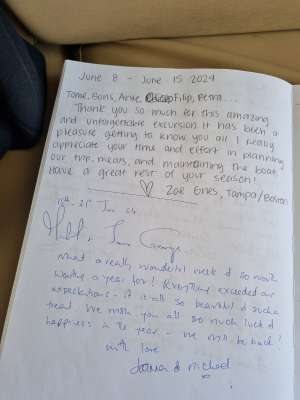 June 8 - June 15 2024
Tome, Boris, Ante, Filip, Petra....
Thank you so much for this amazing
and unforgettable excursion. It has been a
pleasure getting to know you all. I really
appreciate your time and effort in planning
our trip, meals, and maintaining the boat.
Have a great rest of your season!
♡ Zoe Enes, Tampa/Boston
What a really wonderful week & so worth
waiting a year for! Everything exceeded our
expectations - it is all so beautiful & such a
treat. We wish you all so much luck &
happiness in the year - we will be back!
with love
& Michael